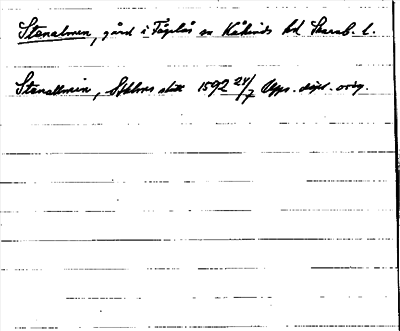 Stenalmen, gård i Fågelås sn Kåkinds hd Skarab. l.
Stenallmin, Sthlms slott 1592 24/7 Upps. dipl. orig.